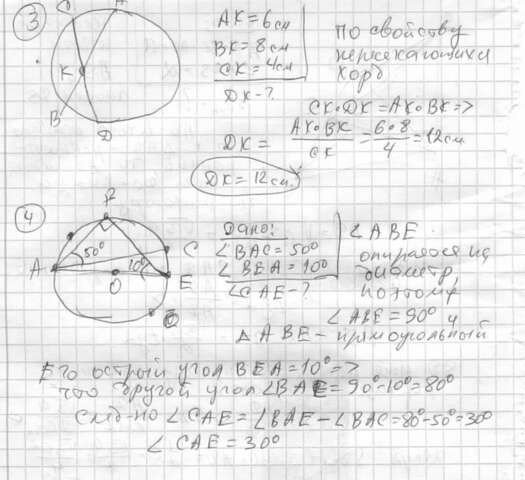 3
C
A
K
B
D
AK=6см
BK=8см
CK=4см
DK-?
по свойству
пересекающихся
хорд
CK·DK=AK·BK=>
DK = AK·BK/CK = 6·8/4 = 12см
DK=12см.
4
B
A
50°
C
10°
E
O
Дано:
∠BAC=50°
∠BEA=10°
∠CAE-?
∠ABE
опирается на
диаметр,
поэтому
∠ABE=90° и
△ABE-прямоугольный
Его острый угол BEA=10°=>
что другой угол ∠BAE=90°-10°=80°
след-но ∠CAE=∠BAE-∠BAC=80°-50°=30°
∠CAE=30°